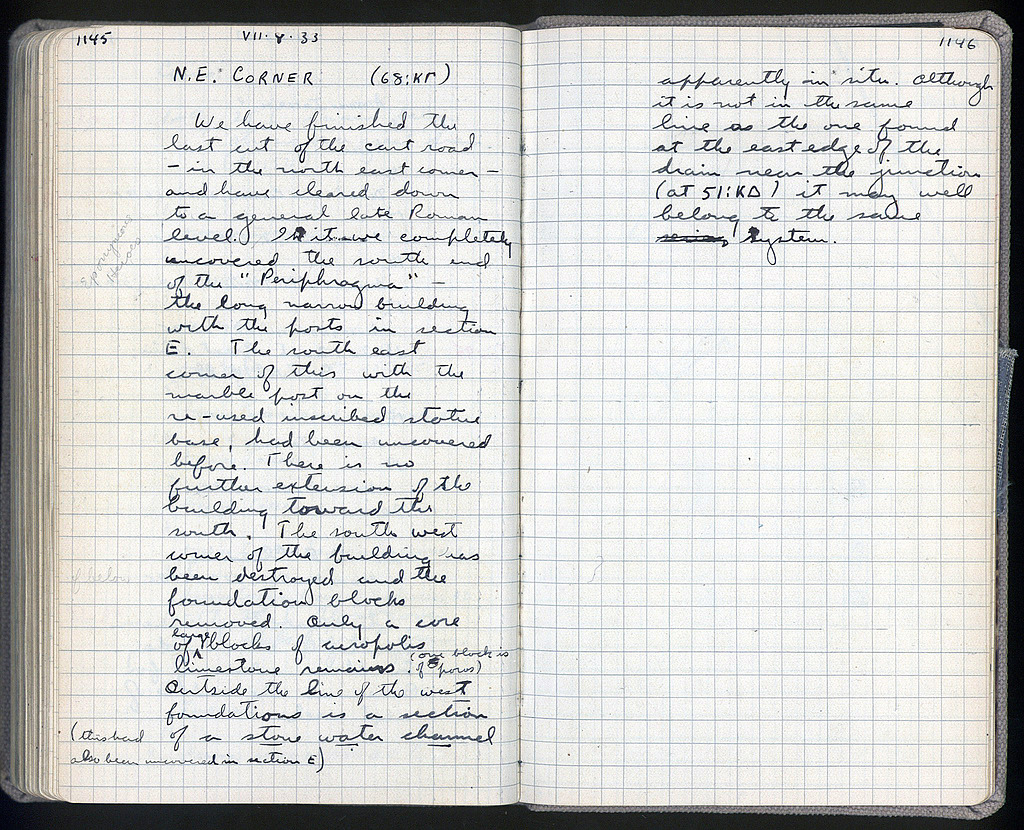 1145
VII · 8 · 33
N.E. CORNER (68:ΚΓ)
We have finished the
last cut of the cart road
– in the north east corner –
and have cleared down
to a general late Roman
level. In it we completely
uncovered the south end
of the "Periphragma" –
the long narrow building
with the posts in section
E. The south east
corner of this with the
marble post on the
re-used inscribed statue
base, had been uncovered
before. There is no
further extension of the
building toward the
south. The south west
corner of the building has
been destroyed and the
foundation blocks
removed. Only a core
of large blocks of acropolis
limestone remains. (one block is
of poros)
Outside the line of the west
foundations is a section
of a stone water channel
(this had
also been uncovered in section E)
Eponymous
Heroes
cf below
1146
apparently in situ. Although
it is not in the same
line as the one found
at the east edge of the
drain near the junction
(at 51:ΚΔ) it may well
belong to the same
system.